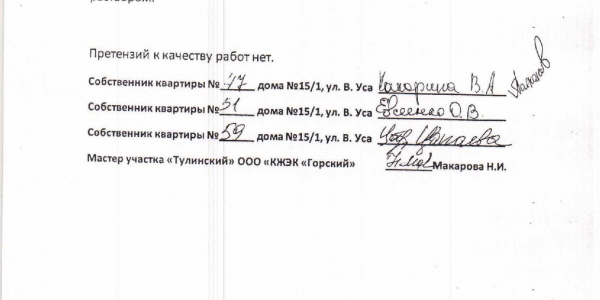 раствором.
Претензий к качеству работ нет.
Собственник квартиры № 47 дома №15/1, ул. В. Уса В.А
Собственник квартиры № 51 дома №15/1, ул. В. Уса Евсеенко О.В.
Собственник квартиры № 59 дома №15/1, ул. В. Уса
Мастер участка «Тулинский» ООО «КЖЭК «Горский» Макарова Н.И.